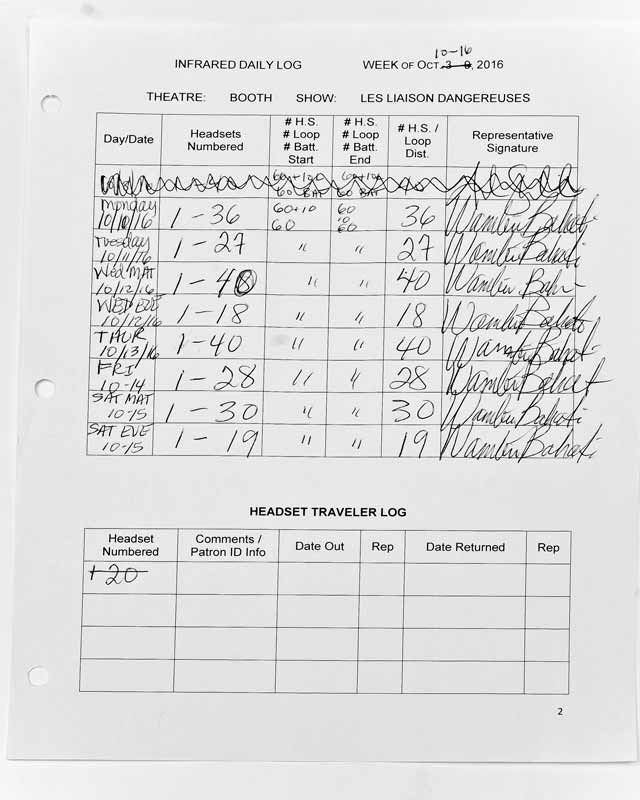 10-16
INFRARED DAILY LOG WEEK OF OCT 3 - 9, 2016
THEATRE: BOOTH SHOW: LES LIAISON DANGEREUSES
Day/Date Headsets Numbered # H.S. # Loop # Batt. Start # H.S. # Loop # Batt. End # H.S. / Loop Dist. Representative Signature
60+10 60+10
60 BAT 60 BAT
Monday 10/10/16 1-36 60+10 60 60 10 60 36 Wambui Bahati
Tuesday 10/11/16 1-27 " " 27 Wambui Bahati
Wed MAT 10/12/16 1-40 " " 40 Wambui Bah
WED EVE 10/12/16 1-18 " " 18 Wambui Bahati
THUR 10/13/16 1-40 " " 40 Wambui Bahati
FRI 10-14 1-28 " " 28 Wambui Bahati
SAT MAT 10-15 1-30 " " 30 Wambui Bahati
SAT EVE 10-15 1-19 " " 19 Wambui Bahati
HEADSET TRAVELER LOG
Headset Numbered Comments / Patron ID Info Date Out Rep Date Returned Rep
1-20
2